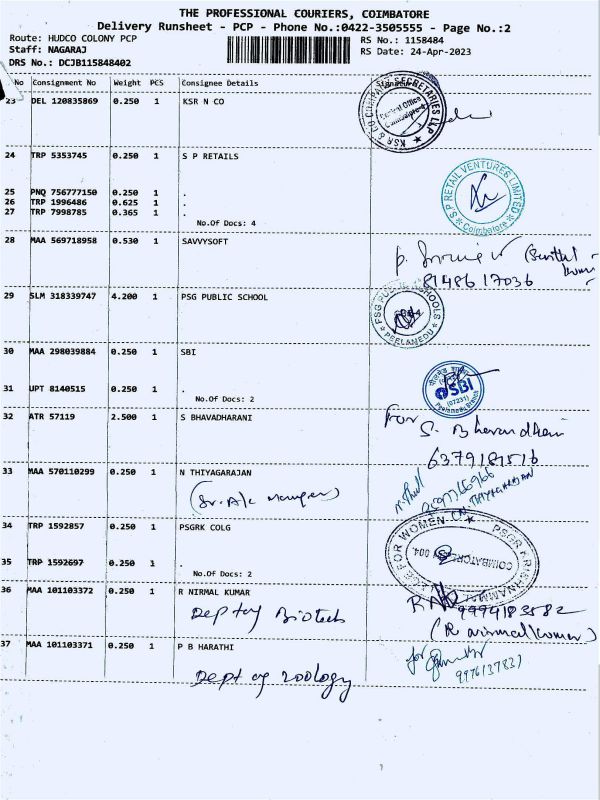 THE PROFESSIONAL COURIERS, COIMBATORE
Delivery Runsheet - PCP - Phone No.:0422-3505555 - Page No.:2
Route: HUDCO COLONY PCP
Staff: NAGARAJ
DRS No.: DCJB115848402
RS No.: 1158484
RS Date: 24-Apr-2023
No Consignment No Weight PCS Consignee Details
23 DEL 120835869 0.250 1 KSR N CO
KSR & CO COMPANY SECRETARIES LLP
Central Office
Coimbatore
24 TRP 5353745 0.250 1 S P RETAILS
25 PNQ 756777150 0.250 1 .
26 TRP 1996486 0.625 1 .
27 TRP 7998785 0.365 1 .
No.Of Docs: 4
S P RETAIL VENTURES LIMITED
Coimbatore
28 MAA 569718958 0.530 1 SAVVYSOFT
8148617036
29 SLM 318339747 4.200 1 PSG PUBLIC SCHOOL
PSG PUBLIC SCHOOLS
PEELAMEDU
30 MAA 298039884 0.250 1 SBI
31 UPT 8140515 0.250 1 .
No.Of Docs: 2
SBI
(07231)
32 ATR 57119 2.500 1 S BHAVADHARANI
For
33 MAA 570110299 0.250 1 N THIYAGARAJAN
(Sr. A/c Manager)
N. THIYAGARAJAN
34 TRP 1592857 0.250 1 PSGRK COLG
35 TRP 1592697 0.250 1 .
No.Of Docs: 2
PSGR KRISHNAMMAL
COLLEGE FOR WOMEN
COIMBATORE 004
36 MAA 101103372 0.250 1 R NIRMAL KUMAR
Dept of Biotech
9994183582
(R nirmal kumar)
37 MAA 101103371 0.250 1 P B HARATHI
Dept of zoology
for
9976137831